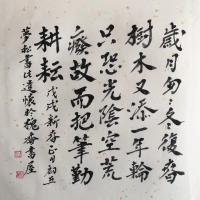 歲月匆匆冬復春
樹木又添一年輪
只恐光陰空荒
癈故而把筆勤
耕耘
戊戌新春正月初五
夢松書法遣懷於槐香書屋